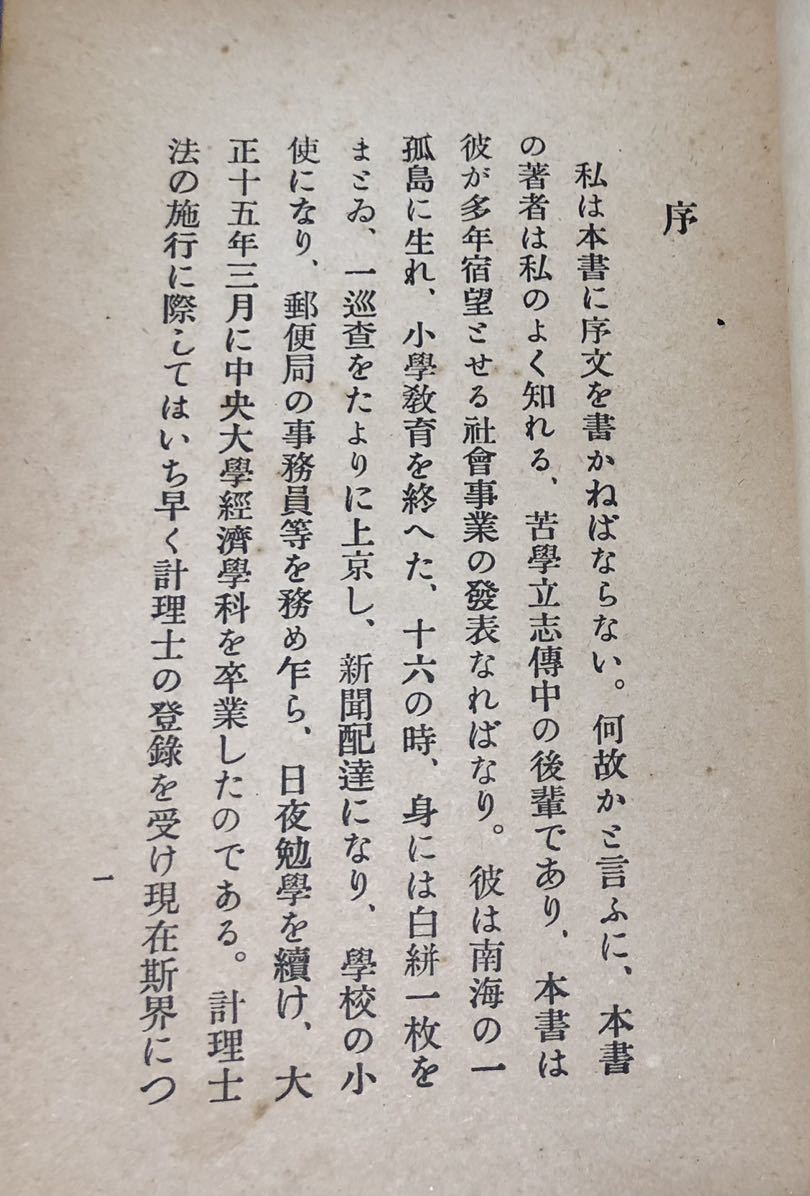 序
私は本書に序文を書かねばならない。何故かと言ふに、本書
の著者は私のよく知れる、苦學立志傳中の後輩であり、本書は
彼が多年宿望とせる社會事業の發表なればなり。彼は南海の一
孤島に生れ、小學敎育を終へた、十六の時、身には白絣一枚を
まとゐ、一巡査をたよりに上京し、新聞配達になり、學校の小
使になり、郵便局の事務員等を務め乍ら、日夜勉學を續け、大
正十五年三月に中央大學經濟學科を卒業したのである。計理士
法の施行に際してはいち早く計理士の登錄を受け現在斯界につ
一